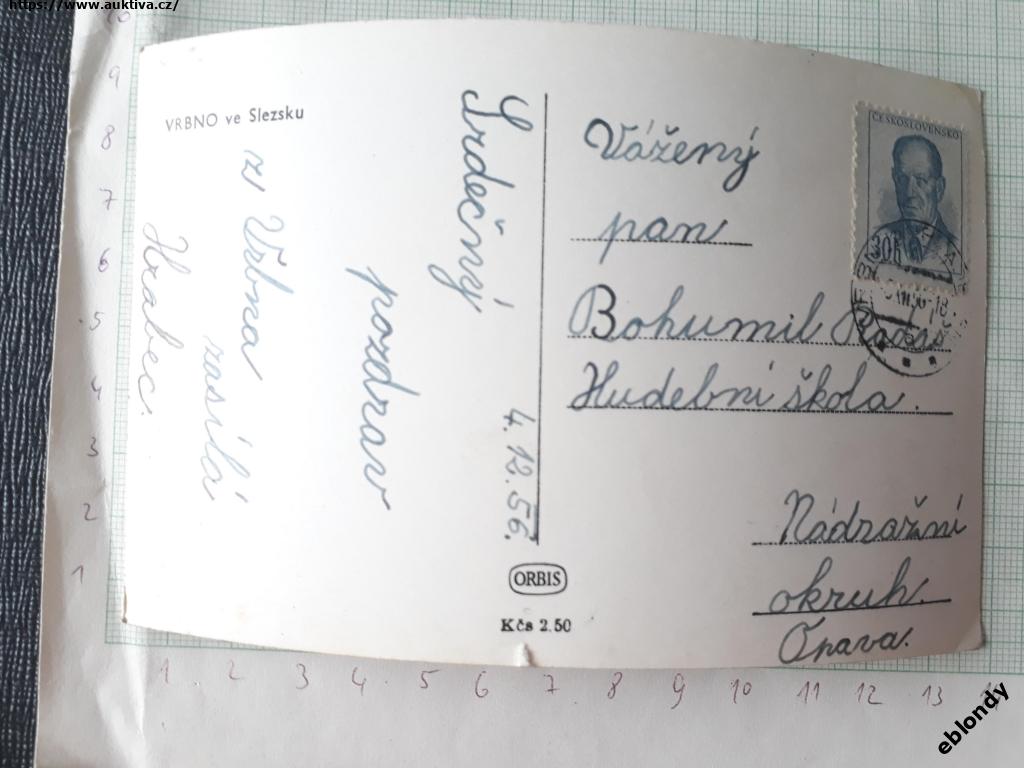 https://www.auktiva.cz/
VRBNO ve Slezsku
Srdečný
pozdrav
z Vrbna
zasílá
Hrabec.
4.12.56.
Vážený
pan
Bohumil
Hudební škola.
Nádražní
okruh.
Opava.
ČESKOSLOVENSKO
ORBIS
Kčs 2.50
10
9
8
7
6
5
4
3
2
1
1 2 3 4 5 6 7 8 9 10 11 12 13
eblondy